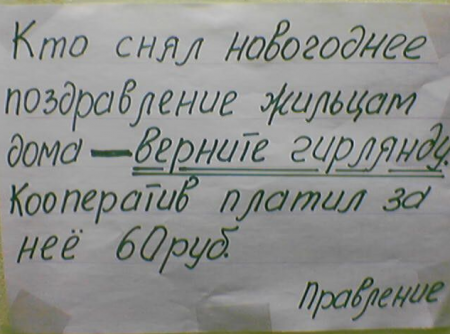 Кто снял новогоднее
поздравление жильцам
дома — верните гирлянду.
Кооператив платил за
неё 60руб.
Правление